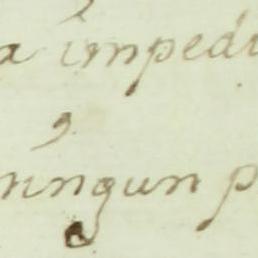 a impedi
ningun p